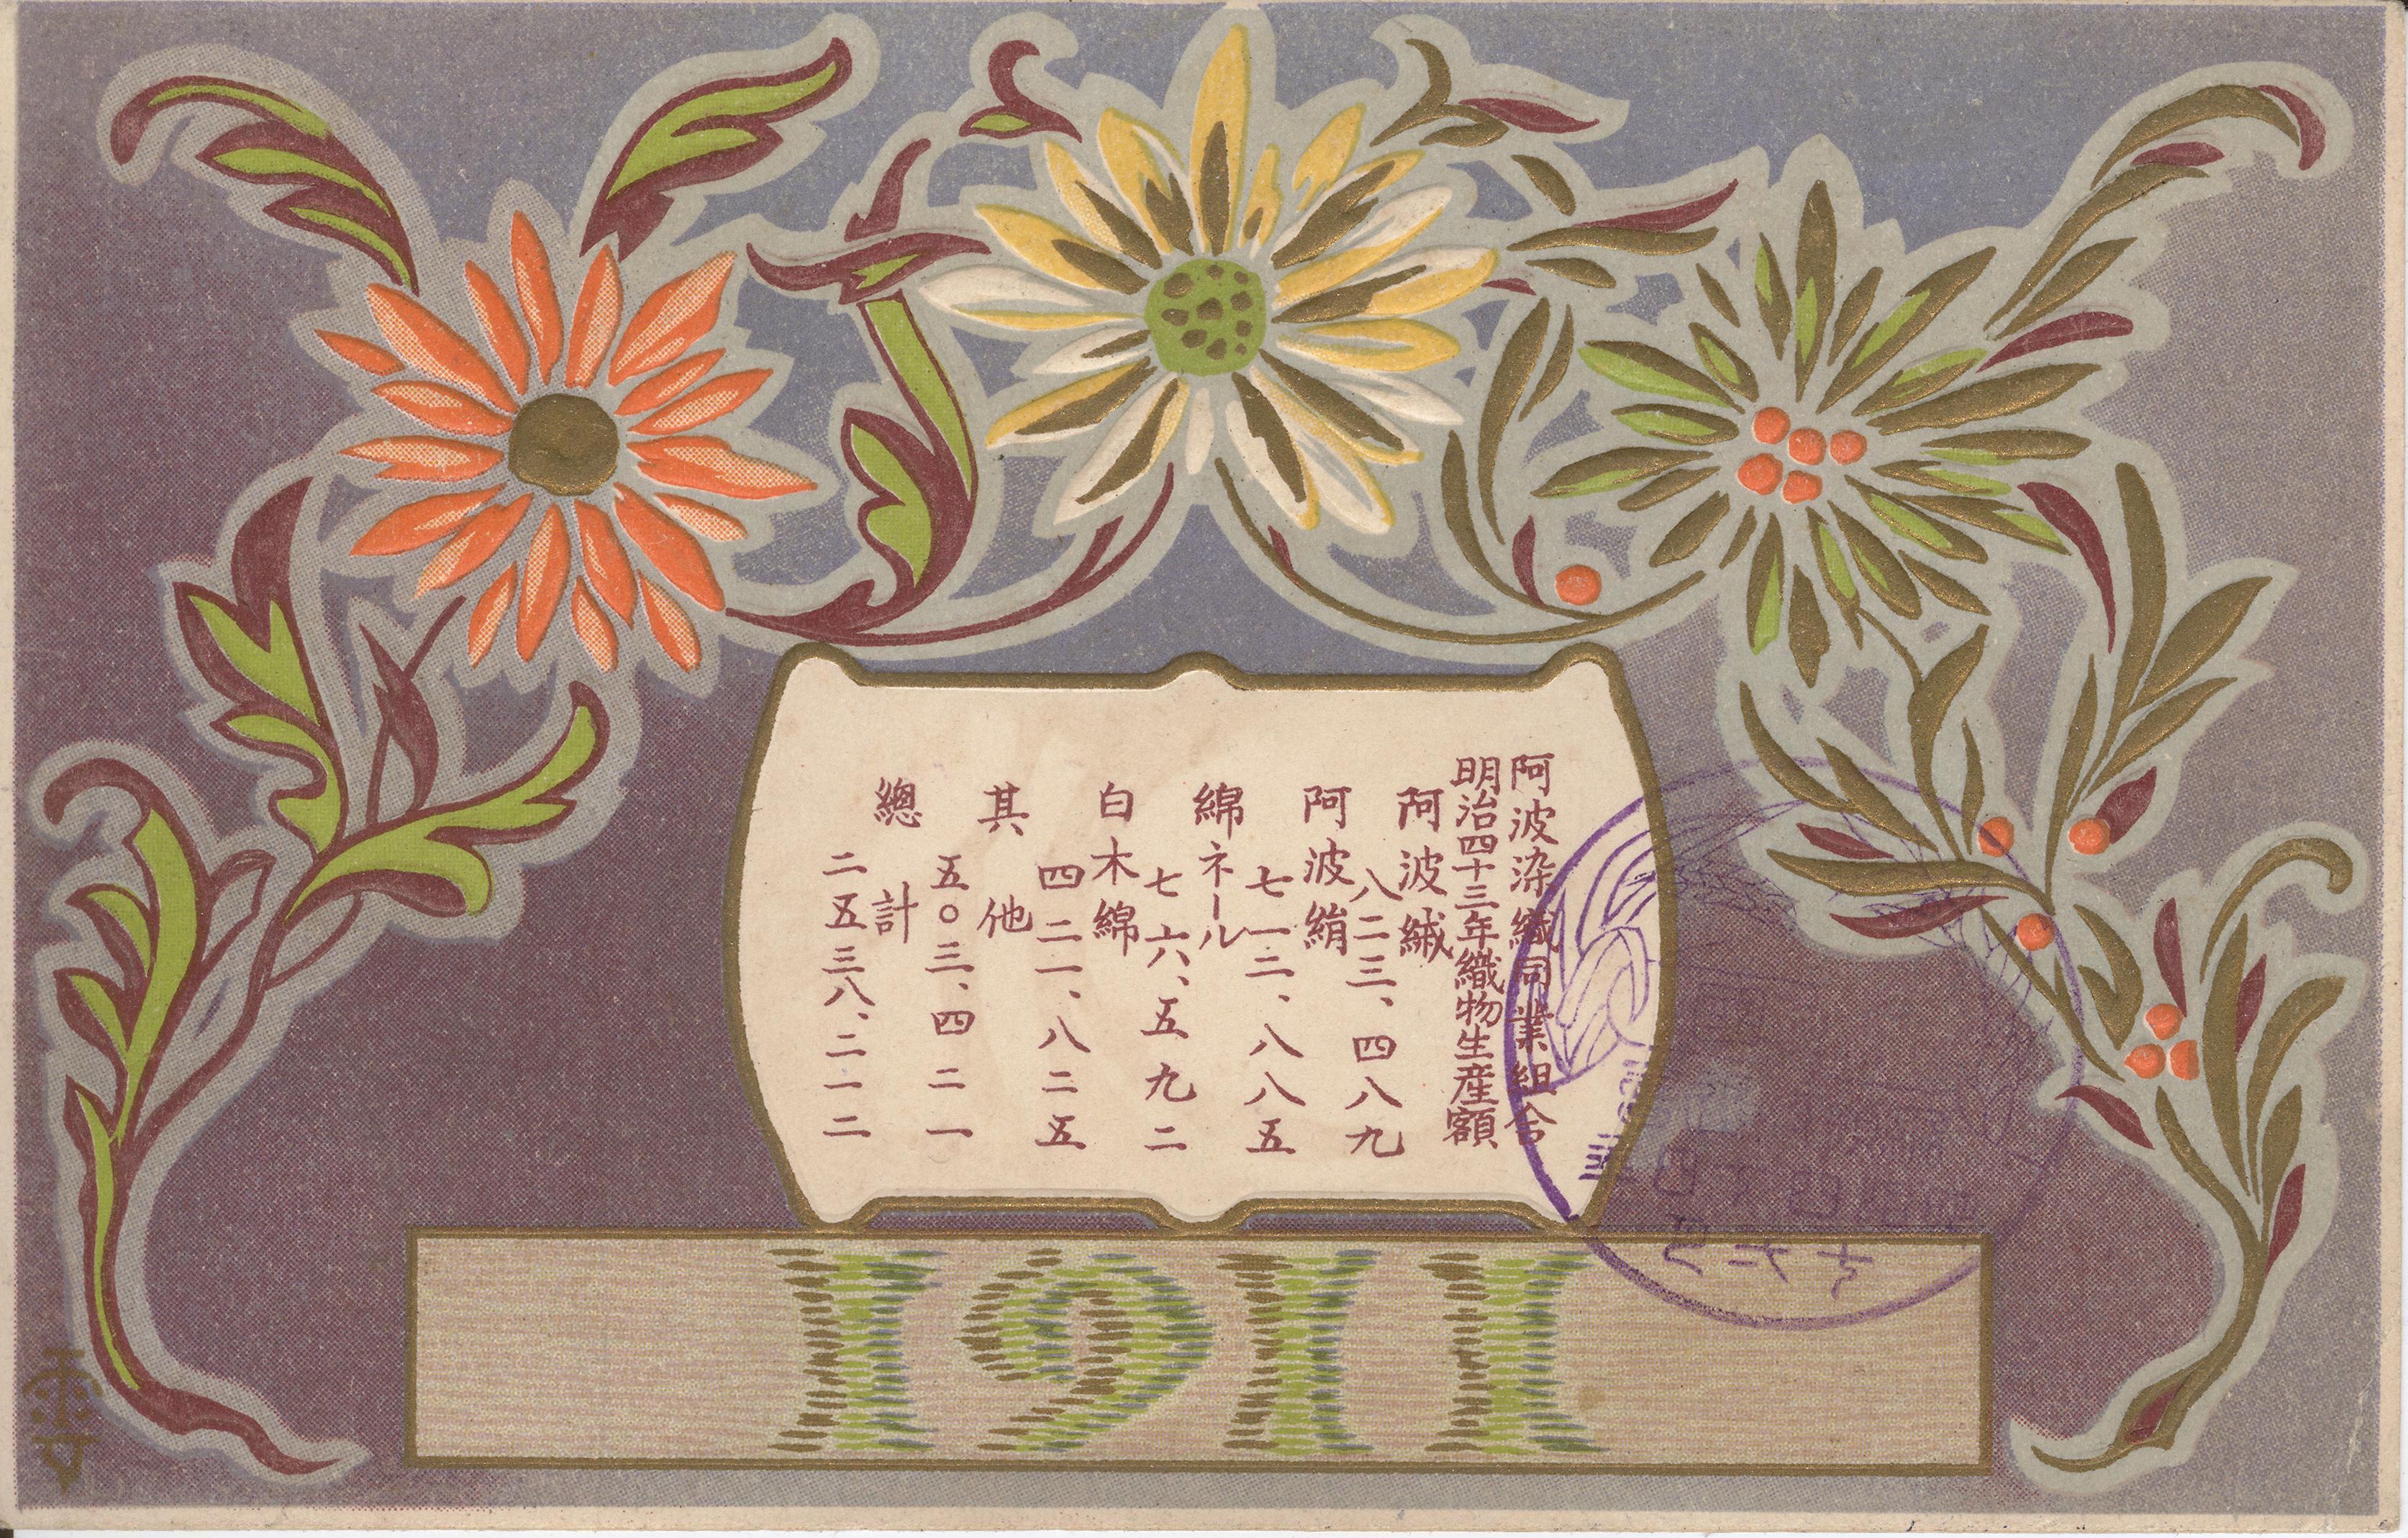 阿波染織同業組合
明治四十三年織物生産額
阿波絨
八二三、四八九
阿波絹
七一二、八八五
綿ネール
七六、五九二
白木綿
四二一、八二五
其他
五〇三、四二一
總計
二五三八、二一二
1911